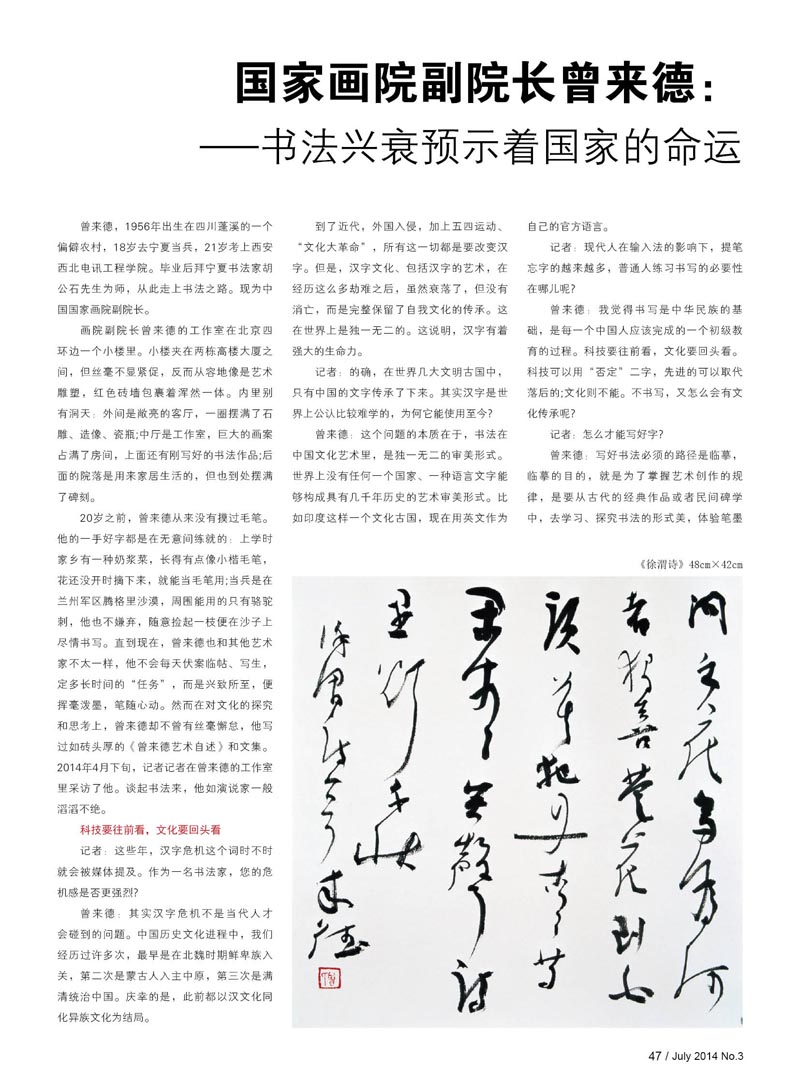 国家画院副院长曾来德：
——书法兴衰预示着国家的命运
曾来德，1956年出生在四川蓬溪的一个
偏僻农村，18岁去宁夏当兵，21岁考上西安
西北电讯工程学院。毕业后拜宁夏书法家胡
公石先生为师，从此走上书法之路。现为中
国国家画院副院长。
画院副院长曾来德的工作室在北京四
环边一个小楼里。小楼夹在两栋高楼大厦之
间，但丝毫不显紧促，反而从容地像是艺术
雕塑，红色砖墙包裹着浑然一体。内里别
有洞天：外间是敞亮的客厅，一圈摆满了石
雕、造像、瓷瓶;中厅是工作室，巨大的画案
占满了房间，上面还有刚写好的书法作品;后
面的院落是用来家居生活的，但也到处摆满
了碑刻。
20岁之前，曾来德从来没有摸过毛笔。
他的一手好字都是在无意间练就的：上学时
家乡有一种奶浆菜，长得有点像小楷毛笔，
花还没开时摘下来，就能当毛笔用;当兵是在
兰州军区腾格里沙漠，周围能用的只有骆驼
刺，他也不嫌弃，随意捡起一枝便在沙子上
尽情书写。直到现在，曾来德也和其他艺术
家不太一样，他不会每天伏案临帖、写生，
定多长时间的“任务”，而是兴致所至，便
挥毫泼墨，笔随心动。然而在对文化的探究
和思考上，曾来德却不曾有丝毫懈怠，他写
过如砖头厚的《曾来德艺术自述》和文集。
2014年4月下旬，记者记者在曾来德的工作室
里采访了他。谈起书法来，他如演说家一般
滔滔不绝。
科技要往前看，文化要回头看
记者：这些年，汉字危机这个词时不时
就会被媒体提及。作为一名书法家，您的危
机感是否更强烈?
曾来德：其实汉字危机不是当代人才
会碰到的问题。中国历史文化进程中，我们
经历过许多次，最早是在北魏时期鲜卑族入
关，第二次是蒙古人入主中原，第三次是满
清统治中国。庆幸的是，此前都以汉文化同
化异族文化为结局。
到了近代，外国入侵，加上五四运动、
“文化大革命”，所有这一切都是要改变汉
字。但是，汉字文化、包括汉字的艺术，在
经历这么多劫难之后，虽然衰落了，但没有
消亡，而是完整保留了自我文化的传承。这
在世界上是独一无二的。这说明，汉字有着
强大的生命力。
记者：的确，在世界几大文明古国中，
只有中国的文字传承了下来。其实汉字是世
界上公认比较难学的，为何它能使用至今?
曾来德：这个问题的本质在于，书法在
中国文化艺术里，是独一无二的审美形式。
世界上没有任何一个国家、一种语言文字能
够构成具有几千年历史的艺术审美形式。比
如印度这样一个文化古国，现在用英文作为
自己的官方语言。
记者：现代人在输入法的影响下，提笔
忘字的越来越多，普通人练习书写的必要性
在哪儿呢?
曾来德：我觉得书写是中华民族的基
础，是每一个中国人应该完成的一个初级教
育的过程。科技要往前看，文化要回头看。
科技可以用“否定”二字，先进的可以取代
落后的;文化则不能。不书写，又怎么会有文
化传承呢?
记者：怎么才能写好字?
曾来德：写好书法必须的路径是临摹，
临摹的目的，就是为了掌握艺术创作的规
律，是要从古代的经典作品或者民间碑学
中，去学习、探究书法的形式美，体验笔墨
《徐渭诗》48cm×42cm
47 / July 2014 No.3